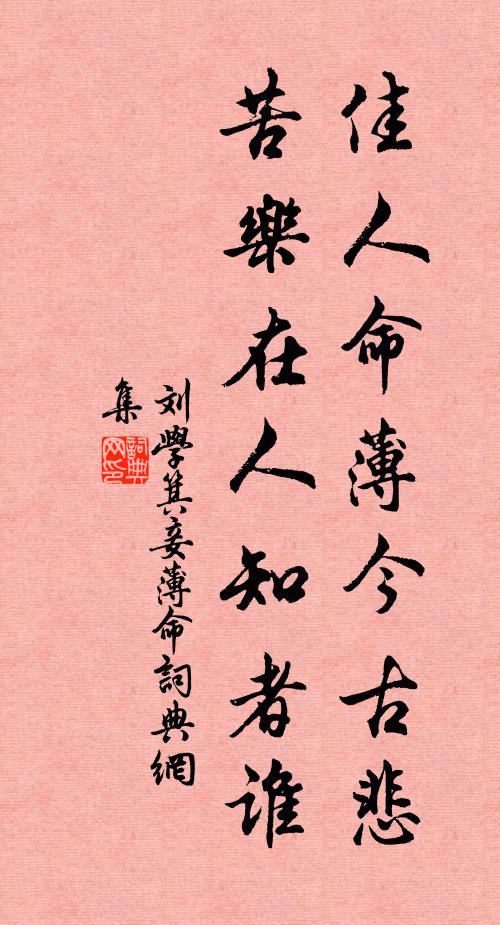 佳人命薄今古悲
苦樂在人知者谁
刘學箕妾薄命詞典網
集
詞典网印